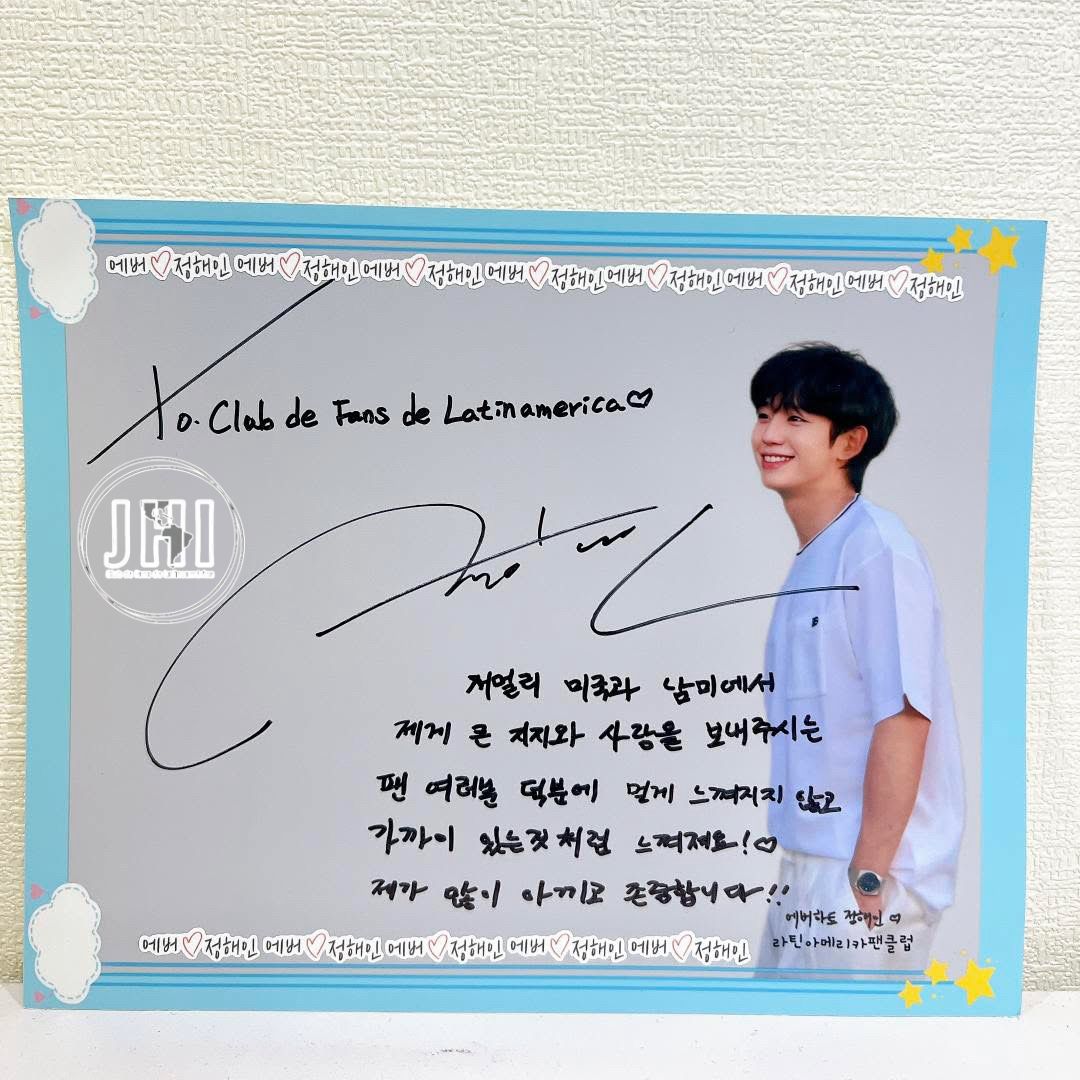 에버♡정해인 에버♡정해인 에버♡정해인 에버♡정해인 에버♡정해인 에버♡정해인 에버♡정해인
To. Club de Fans de Latinamerica♡
JHI
저멀리 미국과 남미에서
제게 큰 지지와 사랑을 보내주시는
팬 여러분 덕분에 멀게 느껴지지 않고
가까이 있는것 처럼 느껴져요!♡
제가 많이 아끼고 존중합니다!!
에버하트 정해인♡
라틴아메리카팬클럽
에버♡정해인 에버♡정해인 에버♡정해인 에버♡정해인 에버♡정해인